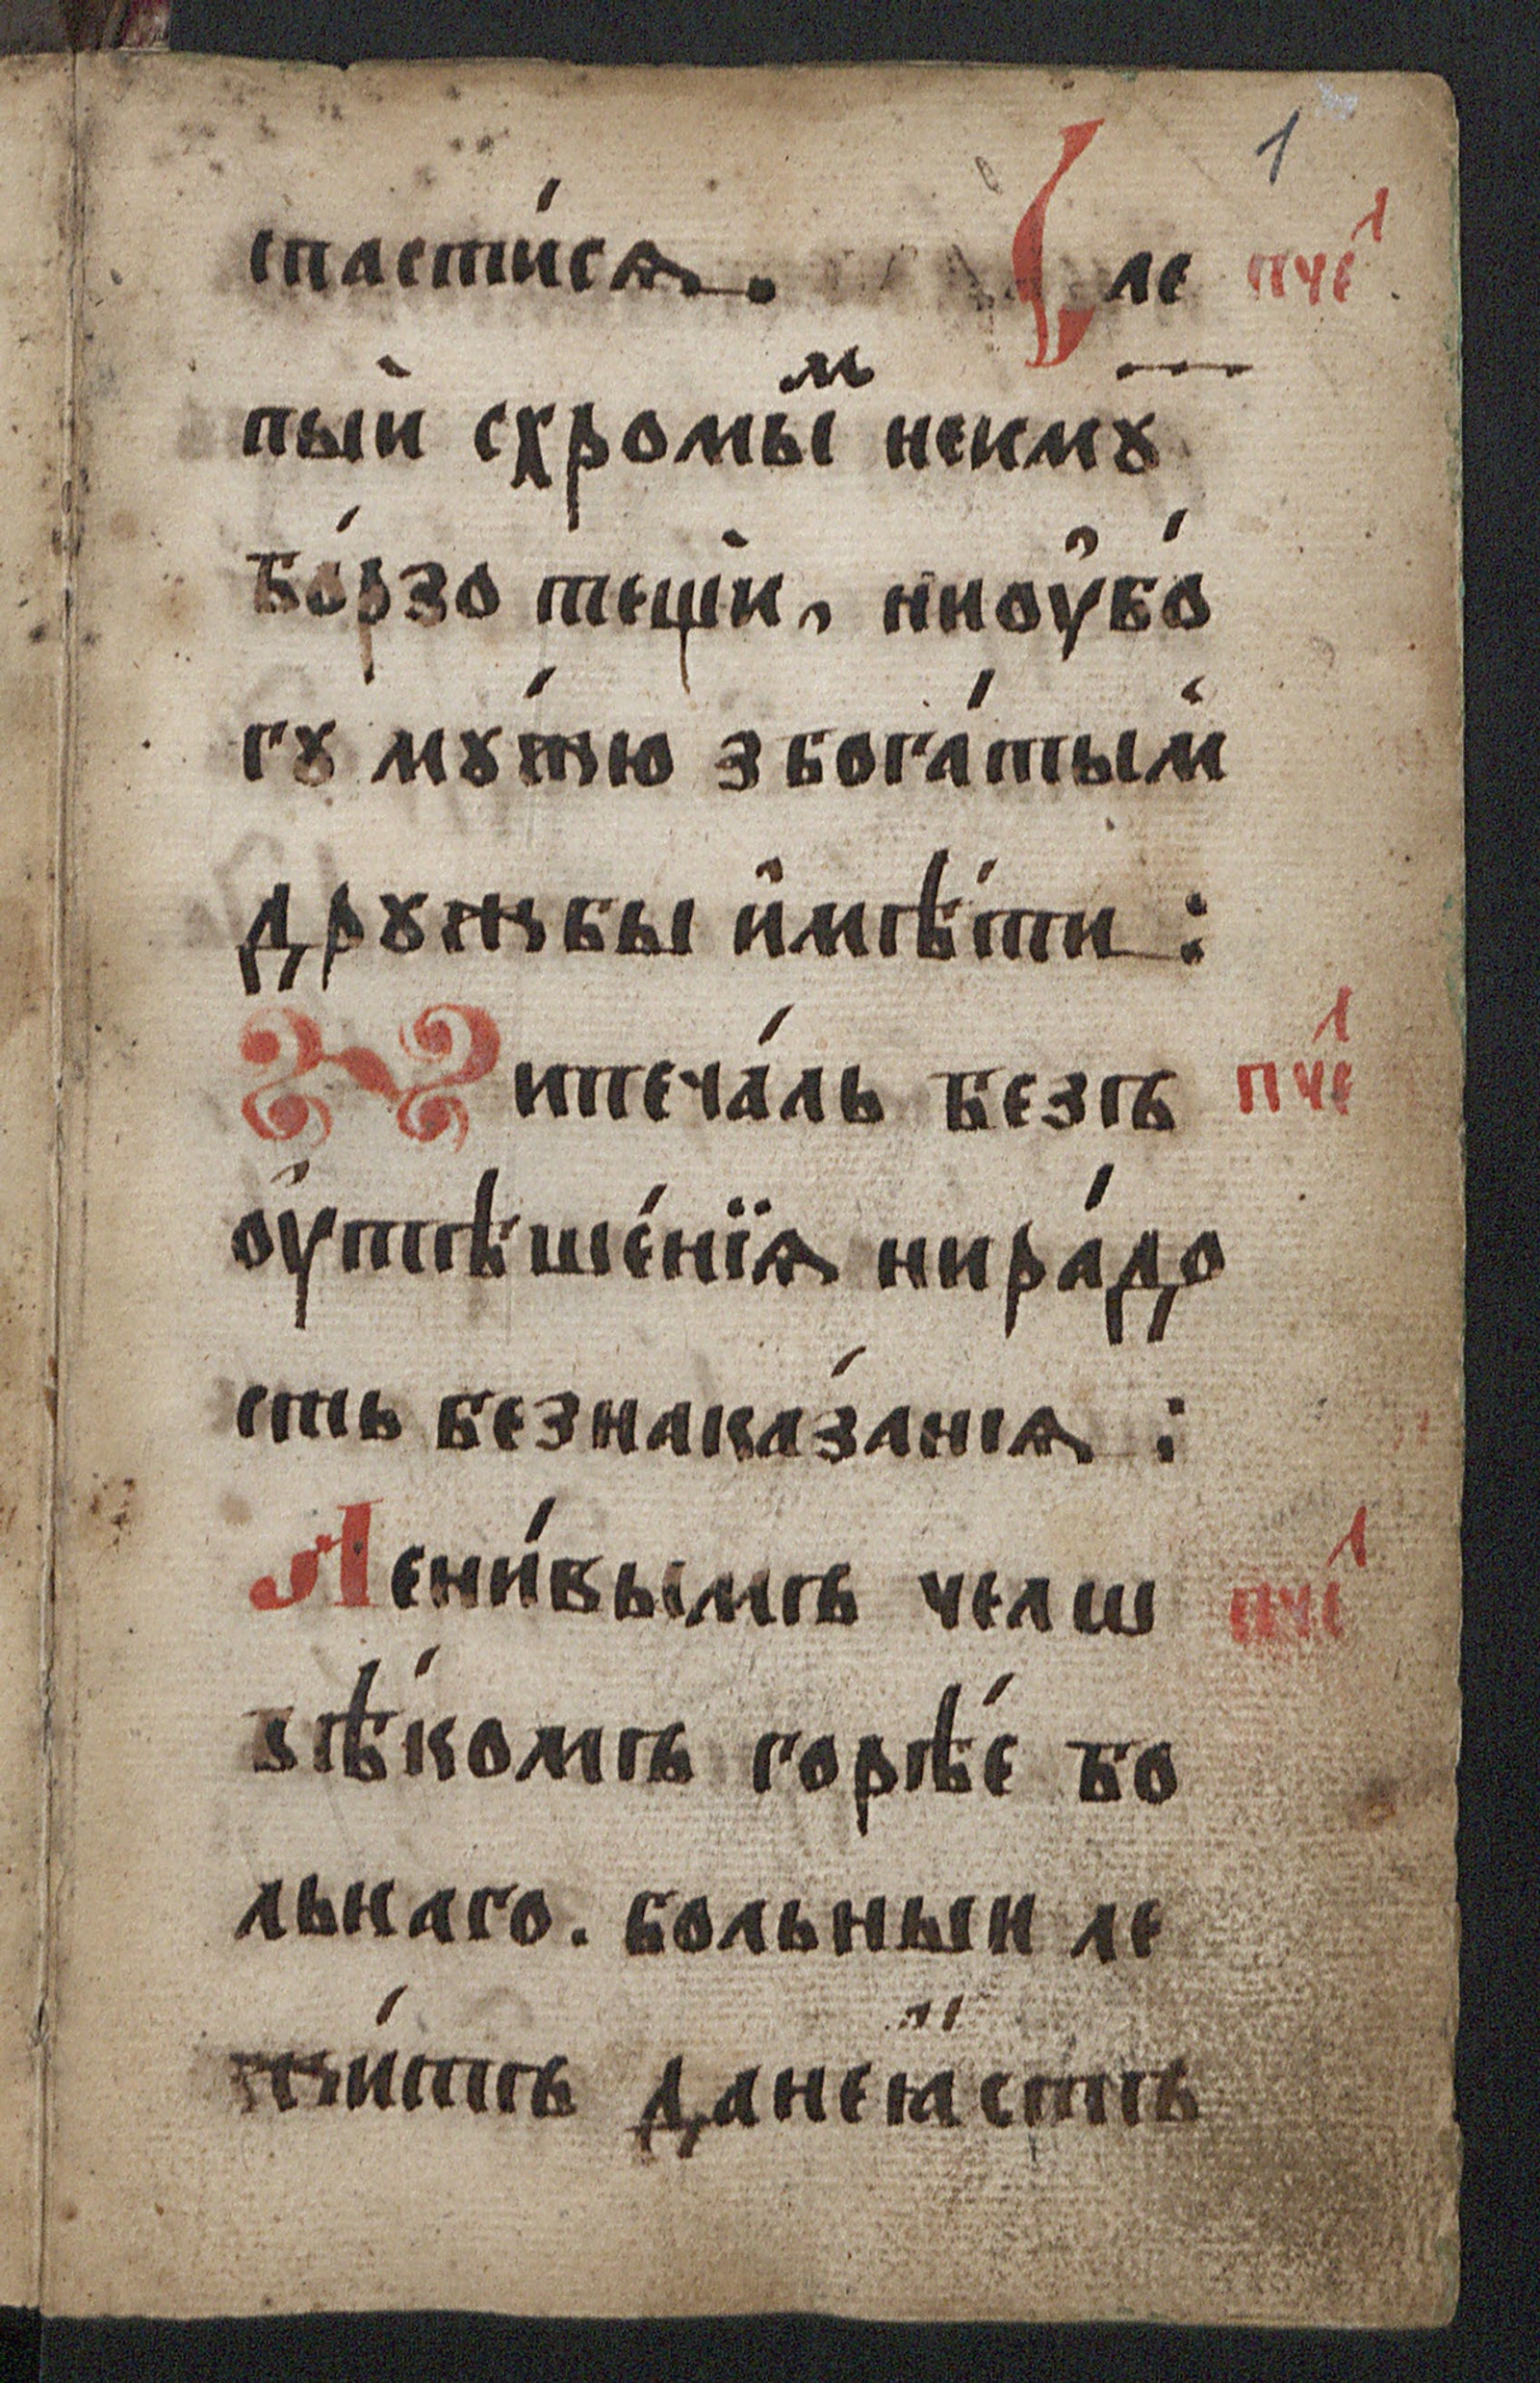 1
спасти́сѧ. Сле пче́л
пы́й схромы́м некмꙋ
бо́рзо тещѝ, ниоу҆бо́
гꙋ мꙋ́жю збога́тыми̑
дрꙋжбы и҆мѣ́ти :
Нипеча́ль безъ пчел
оу҆тѣше́нїѧ нира́до
сть безнака́занiѧ :
Лени́вымъ челѡ пчел
вѣ́комъ горѣ́е бо
льнаго. больныи ле
жи́тъ данеꙗ҆стъ